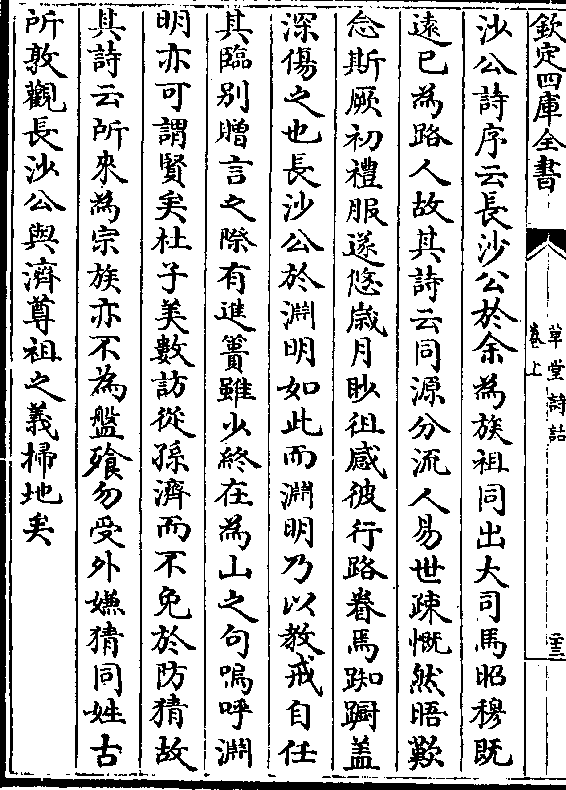 欽定四庫全書
草堂詩話
卷上
二十三
沙公詩序云長沙公於余為族祖同出大司馬昭穆既
遠已為路人故其詩云同源分流人易世疎慨然晤歎
念斯厥初禮服遂悠歲月眇徂感彼行路眷焉踟躕蓋
深傷之也長沙公於淵明如此而淵明乃以教戒自任
其臨別贈言之際有進簣雖少終在為山之句嗚呼淵
明亦可謂賢矣杜子美數訪從孫濟而不免於防猜故
其詩云所來為宗族亦不為盤飱勿受外嫌猜同姓古
所敦觀長沙公與濟尊祖之義掃地矣